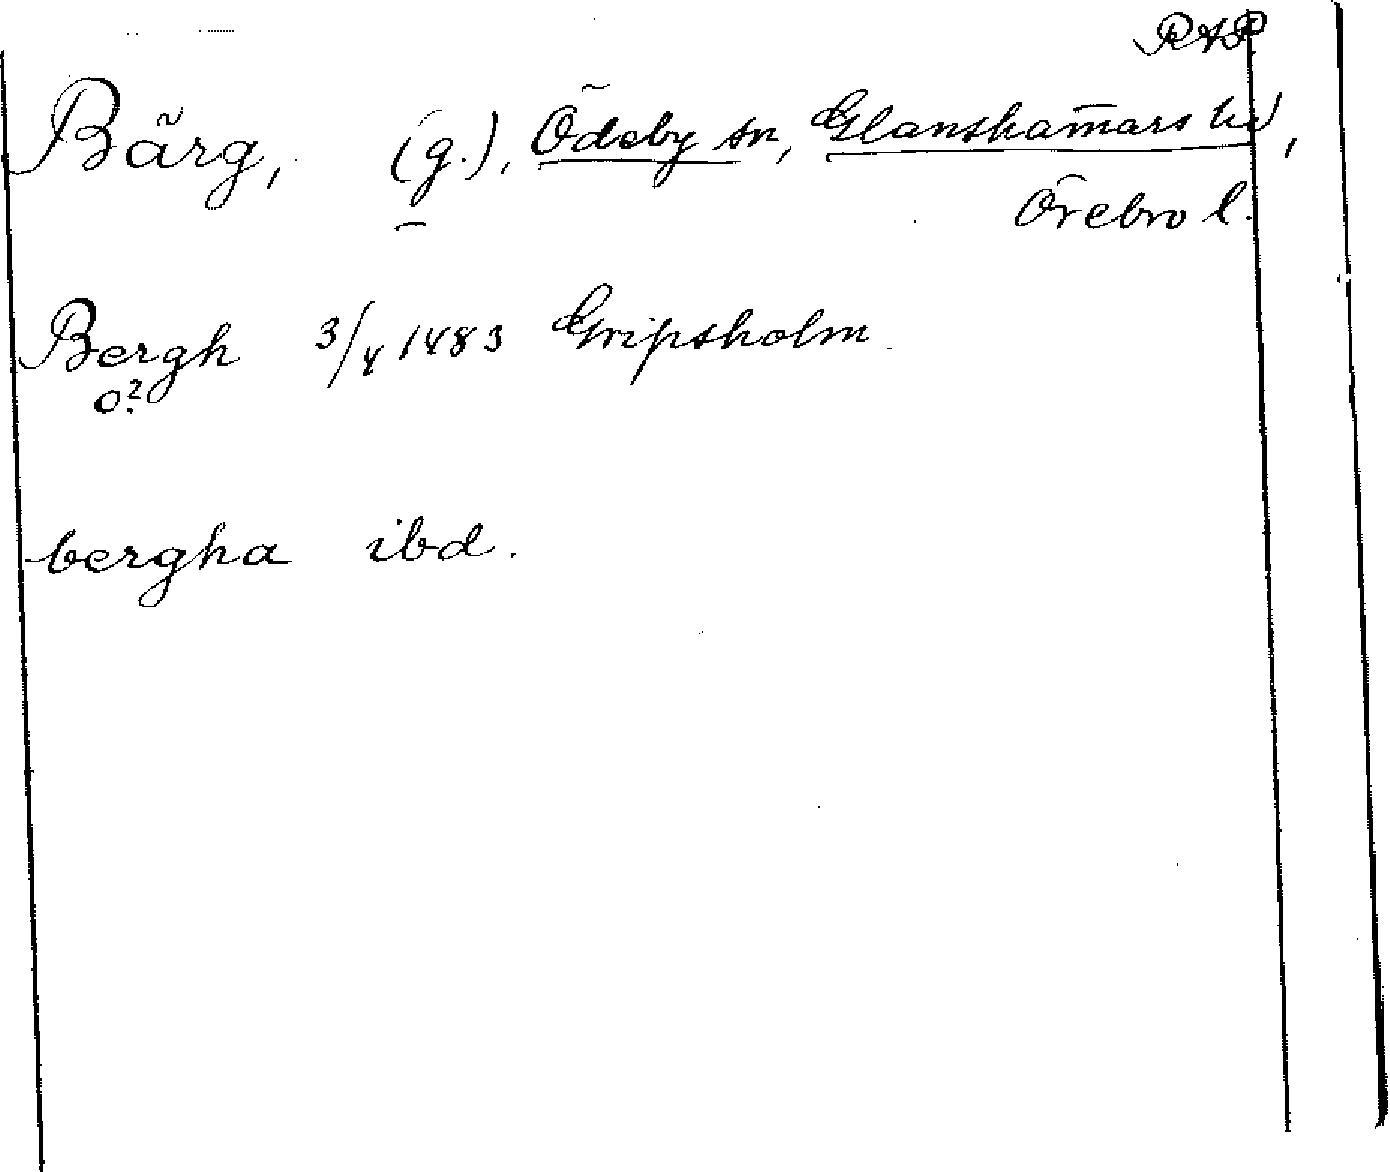 RAP
Bärg, (g.), Ödeby sn, Glanshammars hd,
Örebro l.
Bergh 3/4 1483 Gripsholm
o?
bergha ibd.